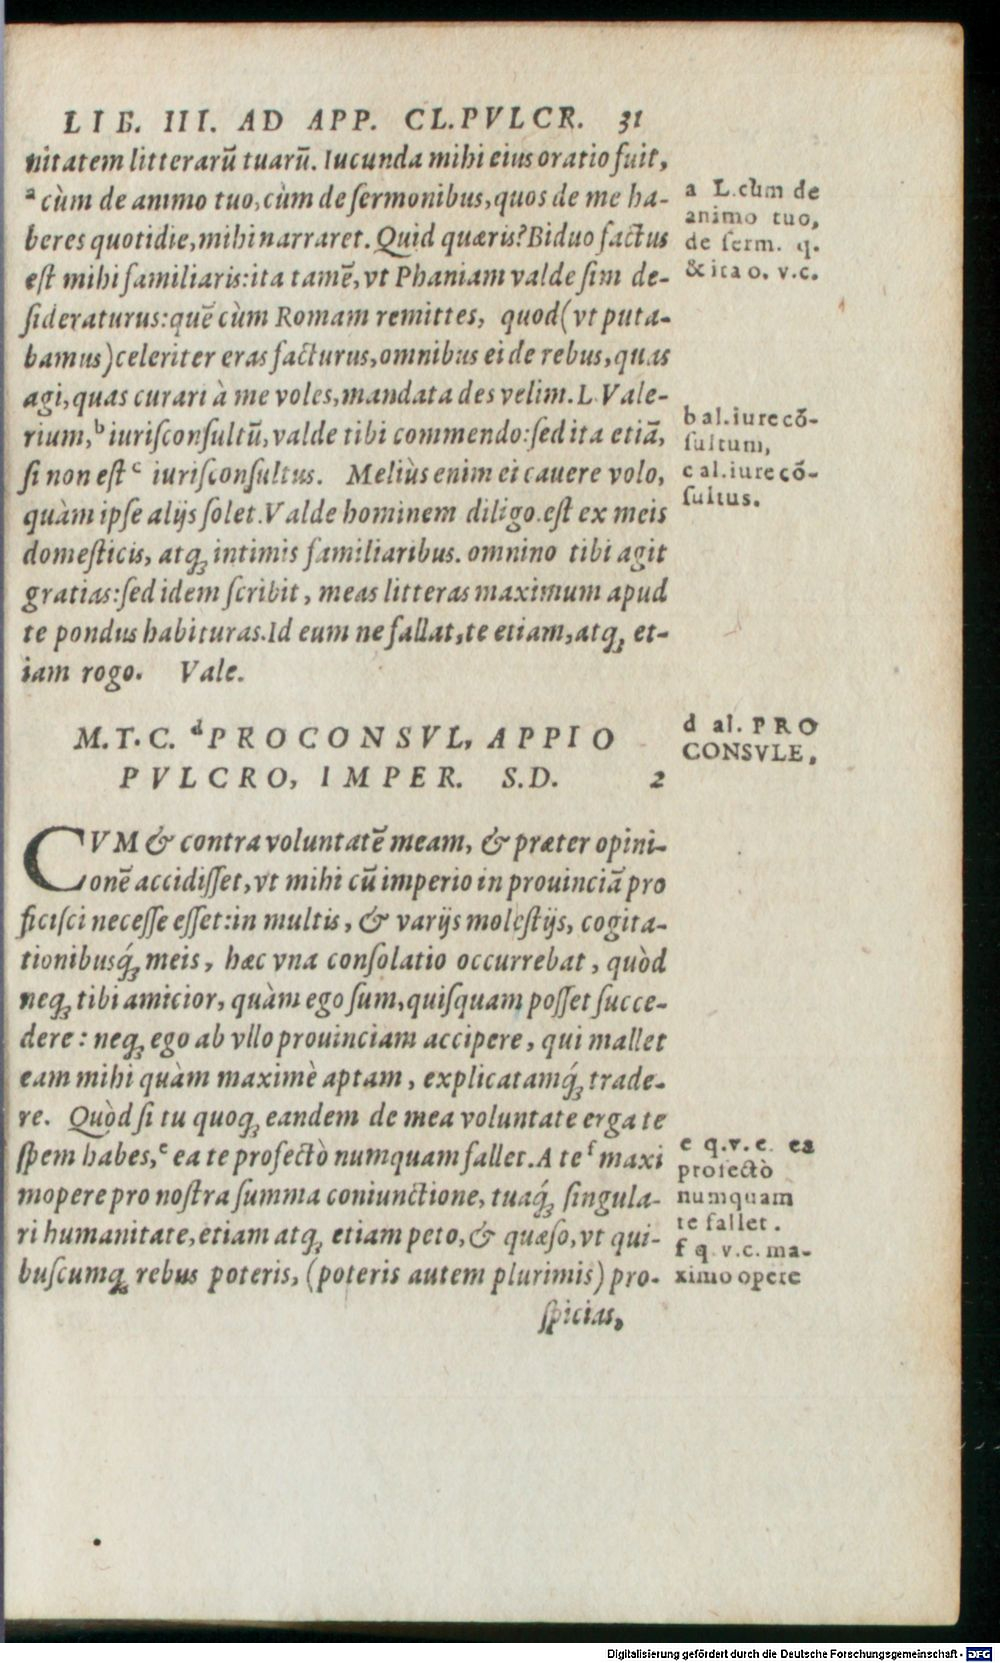 LIB. III. AD APP. CL.PVLCR. 31
nitatem litterarū tuarū. Iucunda mihi eius oratio fuit,
a cùm de animo tuo, cùm de sermonibus, quos de me ha-
beres quotidie, mihi narraret. Quid quæris? Biduo factus
est mihi familiaris: ita tamē, vt Phaniam valde sim de-
sideraturus: quē cùm Romam remittes, quod (vt puta-
bamus) celeriter eras facturus, omnibus ei de rebus, quas
agi, quas curari à me voles, mandata des velim. L. Vale-
rium, b iurisconsultū, valde tibi commendo: sed ita etiā,
si non est c iurisconsultus. Meliùs enim ei cauere volo,
quàm ipse alijs solet. Valde hominem diligo. est ex meis
domesticis, atq; intimis familiaribus. omnino tibi agit
gratias: sed idem scribit, meas litteras maximum apud
te pondus habituras. Id eum ne fallat, te etiam, atq; et-
iam rogo. Vale.
a L. cùm de
animo tuo,
de serm. q.
& ita o. v.c.
b al. iure cō-
sultum,
c al. iure cō-
sultus.
M.T.C. d PROCONSVL, APPIO
PVLCRO, IMPER. S.D. 2
d al. PRO
CONSVLE,
CVM & contra voluntatē meam, & præter opini-
onē accidisset, vt mihi cū imperio in prouinciā pro
ficisci necesse esset: in multis, & varijs molestijs, cogita-
tionibusq́; meis, hæc vna consolatio occurrebat, quòd
neq; tibi amicior, quàm ego sum, quisquam posset succe-
dere: neq; ego ab vllo prouinciam accipere, qui mallet
eam mihi quàm maximè aptam, explicatamq́; trade-
re. Quòd si tu quoq; eandem de mea voluntate erga te
spem habes, e ea te profectò numquam fallet. A te f maxi
mopere pro nostra summa coniunctione, tuaq́; singula-
ri humanitate, etiam atq; etiam peto, & quæso, vt qui-
buscumq; rebus poteris, (poteris autem plurimis) pro-
spicias,
e q.v.e. ea
profectò
numquam
te fallet.
f q v.c. ma-
ximo opere
Digitalisierung gefördert durch die Deutsche Forschungsgemeinschaft - DFG